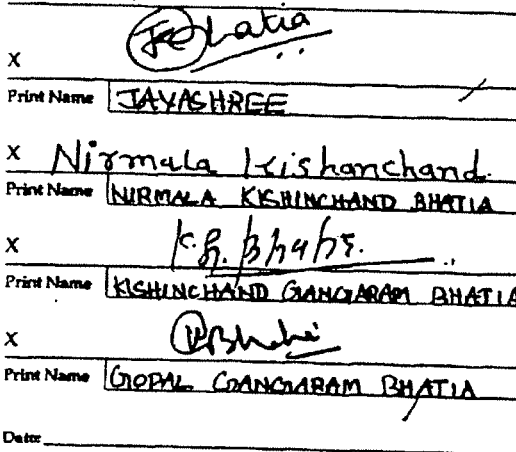 X
Print Name JAYASHREE
X Nirmala Kishanchand
Print Name NIRMALA KISHINCHAND BHATIA
X K.G. Bhatia
Print Name KISHINCHAND GANGARAM BHATIA
X
Print Name GOPAL GANGARAM BHATIA
Date